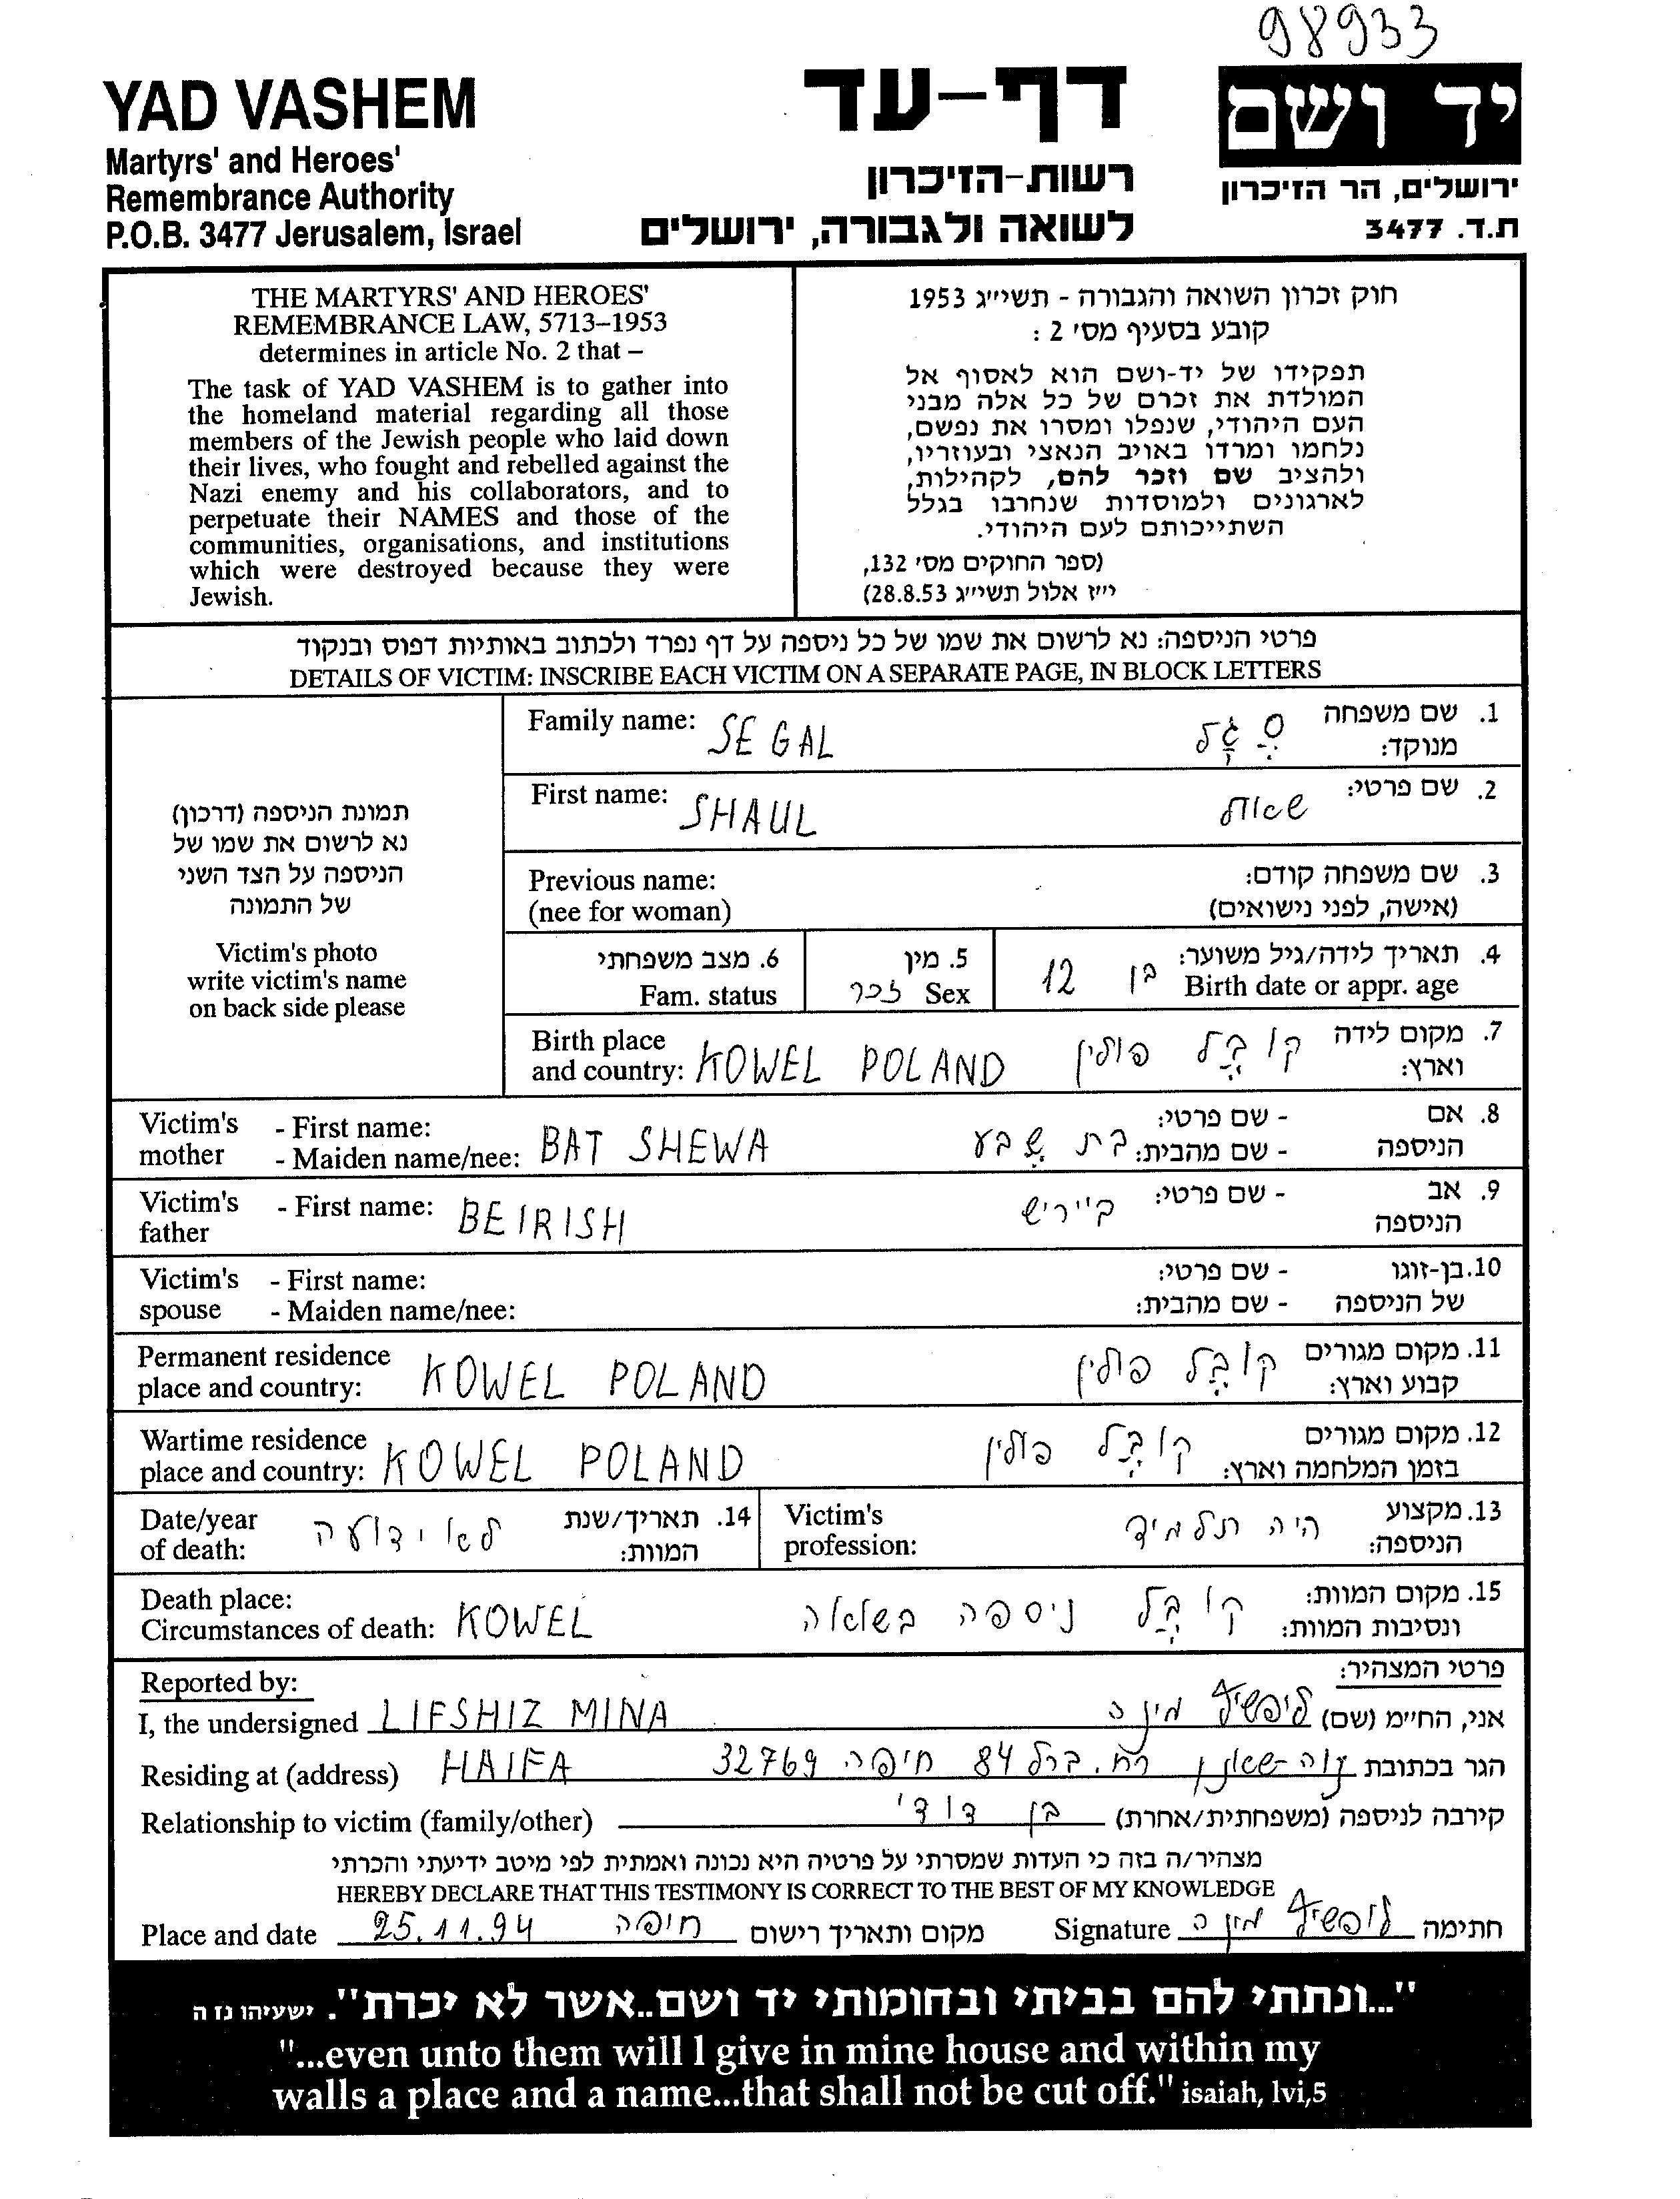 98933
YAD VASHEM
Martyrs' and Heroes'
Remembrance Authority
P.O.B. 3477 Jerusalem, Israel
דף-עד
רשות-הזיכרון
לשואה ולגבורה, ירושלים
יד ושם
ירושלים, הר הזיכרון
ת.ד. 3477
THE MARTYRS' AND HEROES'
REMEMBRANCE LAW, 5713–1953
determines in article No. 2 that –
The task of YAD VASHEM is to gather into
the homeland material regarding all those
members of the Jewish people who laid down
their lives, who fought and rebelled against the
Nazi enemy and his collaborators, and to
perpetuate their NAMES and those of the
communities, organisations, and institutions
which were destroyed because they were
Jewish.
חוק זכרון השואה והגבורה - תשי״ג 1953
קובע בסעיף מס׳ 2 :
תפקידו של יד-ושם הוא לאסוף אל
המולדת את זכרם של כל אלה מבני
העם היהודי, שנפלו ומסרו את נפשם,
נלחמו ומרדו באויב הנאצי ובעוזריו,
ולהציב שם וזכר להם, לקהילות,
לארגונים ולמוסדות שנחרבו בגלל
השתייכותם לעם היהודי.
(ספר החוקים מס׳ 132,
י״ז אלול תשי״ג 28.8.53)
פרטי הניספה: נא לרשום את שמו של כל ניספה על דף נפרד ולכתוב באותיות דפוס ובנקוד
DETAILS OF VICTIM: INSCRIBE EACH VICTIM ON A SEPARATE PAGE, IN BLOCK LETTERS
תמונת הניספה (דרכון)
נא לרשום את שמו של
הניספה על הצד השני
של התמונה
Victim's photo
write victim's name
on back side please
Family name: SEGAL סֶגָל 1. שם משפחה
מנוקד:
First name: SHAUL שאול 2. שם פרטי:
Previous name: 3. שם משפחה קודם:
(nee for woman) (אישה, לפני נישואים)
4. תאריך לידה/גיל משוער: בן 12
Birth date or appr. age
5. מין
Sex זכר
6. מצב משפחתי
Fam. status
Birth place 7. מקום לידה
and country: KOWEL POLAND קובֶל פולין וארץ:
Victim's - First name: - שם פרטי: 8. אם
mother - Maiden name/nee: BAT SHEWA בת שבע - שם מהבית: הניספה
Victim's - First name: BEIRISH ביריש - שם פרטי: 9. אב
father הניספה
Victim's - First name: - שם פרטי: 10. בן-זוגו
spouse - Maiden name/nee: - שם מהבית: של הניספה
Permanent residence 11. מקום מגורים
place and country: KOWEL POLAND קובֶל פולין קבוע וארץ:
Wartime residence 12. מקום מגורים
place and country: KOWEL POLAND קובֶל פולין בזמן המלחמה וארץ:
Date/year 14. תאריך/שנת
of death: לא ידועה המוות:
Victim's 13. מקצוע
profession: היה תלמיד הניספה:
Death place: 15. מקום המוות:
Circumstances of death: KOWEL קובֶל ניספה בשואה ונסיבות המוות:
Reported by: פרטי המצהיר:
I, the undersigned LIFSHIZ MINA ליפשיץ מינה אני, החי״מ (שם)
Residing at (address) HAIFA הגר בכתובת נוה-שאנן רח. ברל 84 חיפה 32769
Relationship to victim (family/other) בן דודי קירבה לניספה (משפחתית/אחרת)
מצהיר/ה בזה כי העדות שמסרתי על פרטיה היא נכונה ואמתית לפי מיטב ידיעתי והכרתי
HEREBY DECLARE THAT THIS TESTIMONY IS CORRECT TO THE BEST OF MY KNOWLEDGE
Place and date 25.11.94 חיפה מקום ותאריך רישום Signature ליפשיץ מינה חתימה
"...ונתתי להם בביתי ובחומותי יד ושם..אשר לא יכרת". ישעיהו נז ה
"...even unto them will I give in mine house and within my
walls a place and a name...that shall not be cut off." isaiah, lvi,5